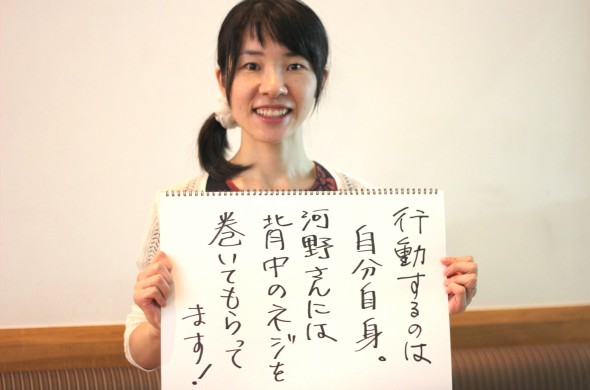 行動するのは
自分自身。
河野さんには
背中のネジを
巻いてもらって
ます!